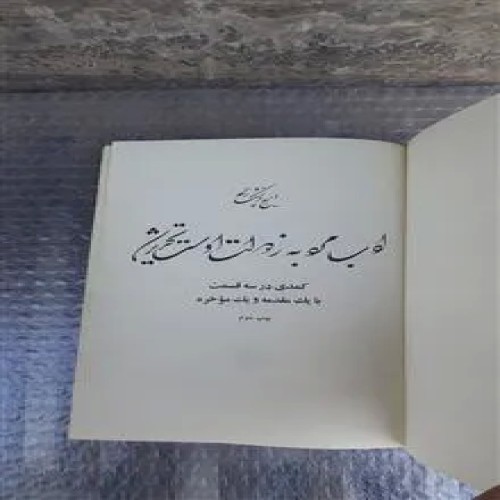 ایرج پزشکزاد
ادب مرد به ز دولت اوست تحریر شد
کمدی در سه قسمت
با یک مقدمه و یک مؤخره
چاپ